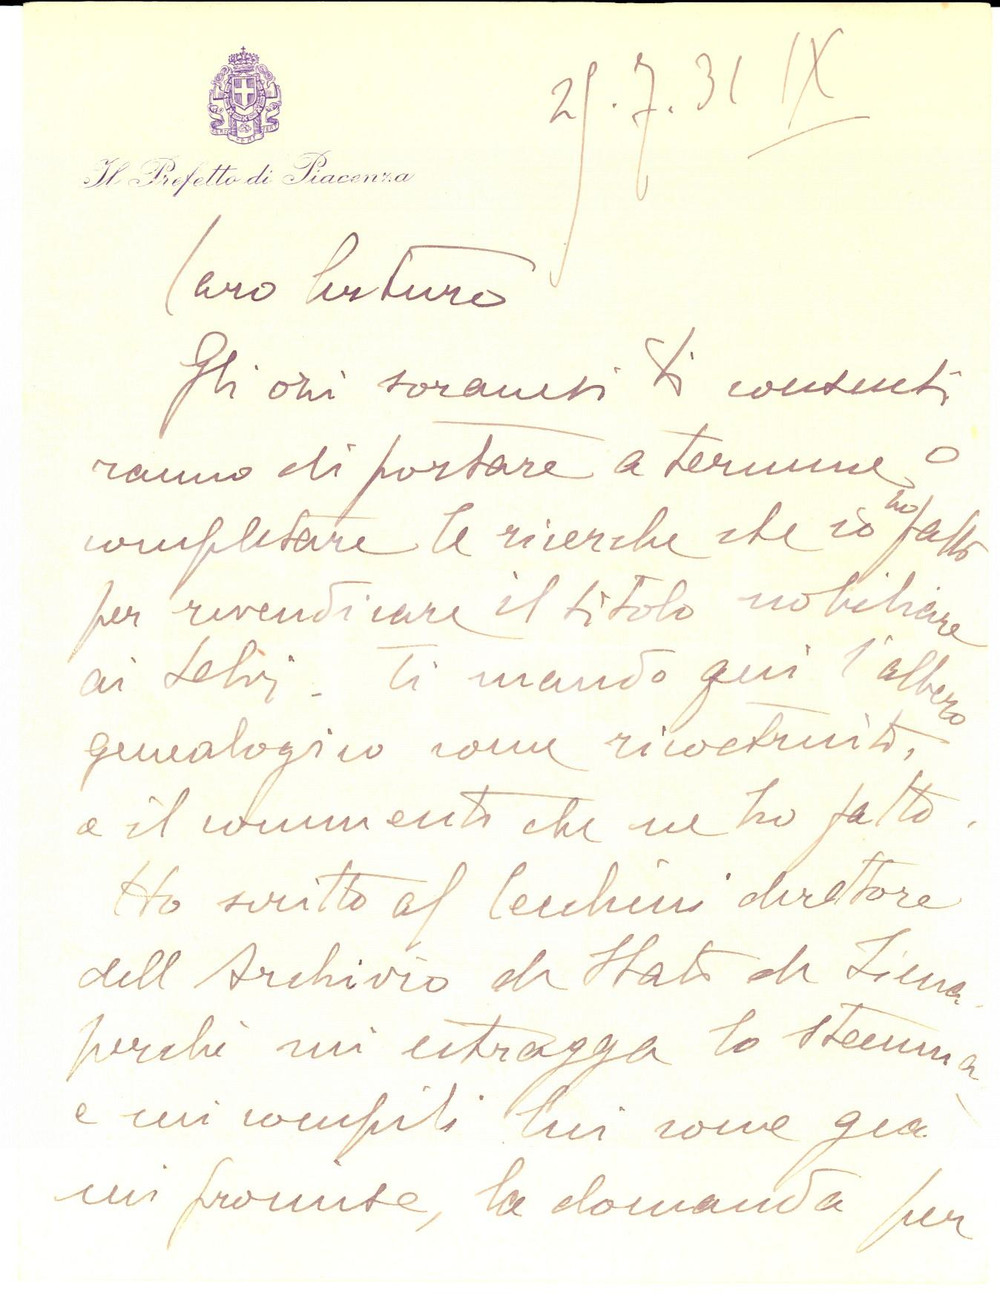 29.7.31 IX
Il Prefetto di Piacenza
Caro Arturo
Gli ozi soranesi ti consenti
ranno di portare a termine o
completare le ricerche che io ho fatto
per rivendicare il titolo nobiliare
ai Selvi. Ti mando qui l'albero
genealogico come ricostruito,
e il commento che ne ho fatto.
Ho scritto al Cecchini direttore
dell Archivio di Stato di Siena
perchè mi estragga lo stemma
e mi compili lui come già
mi promise, la domanda per